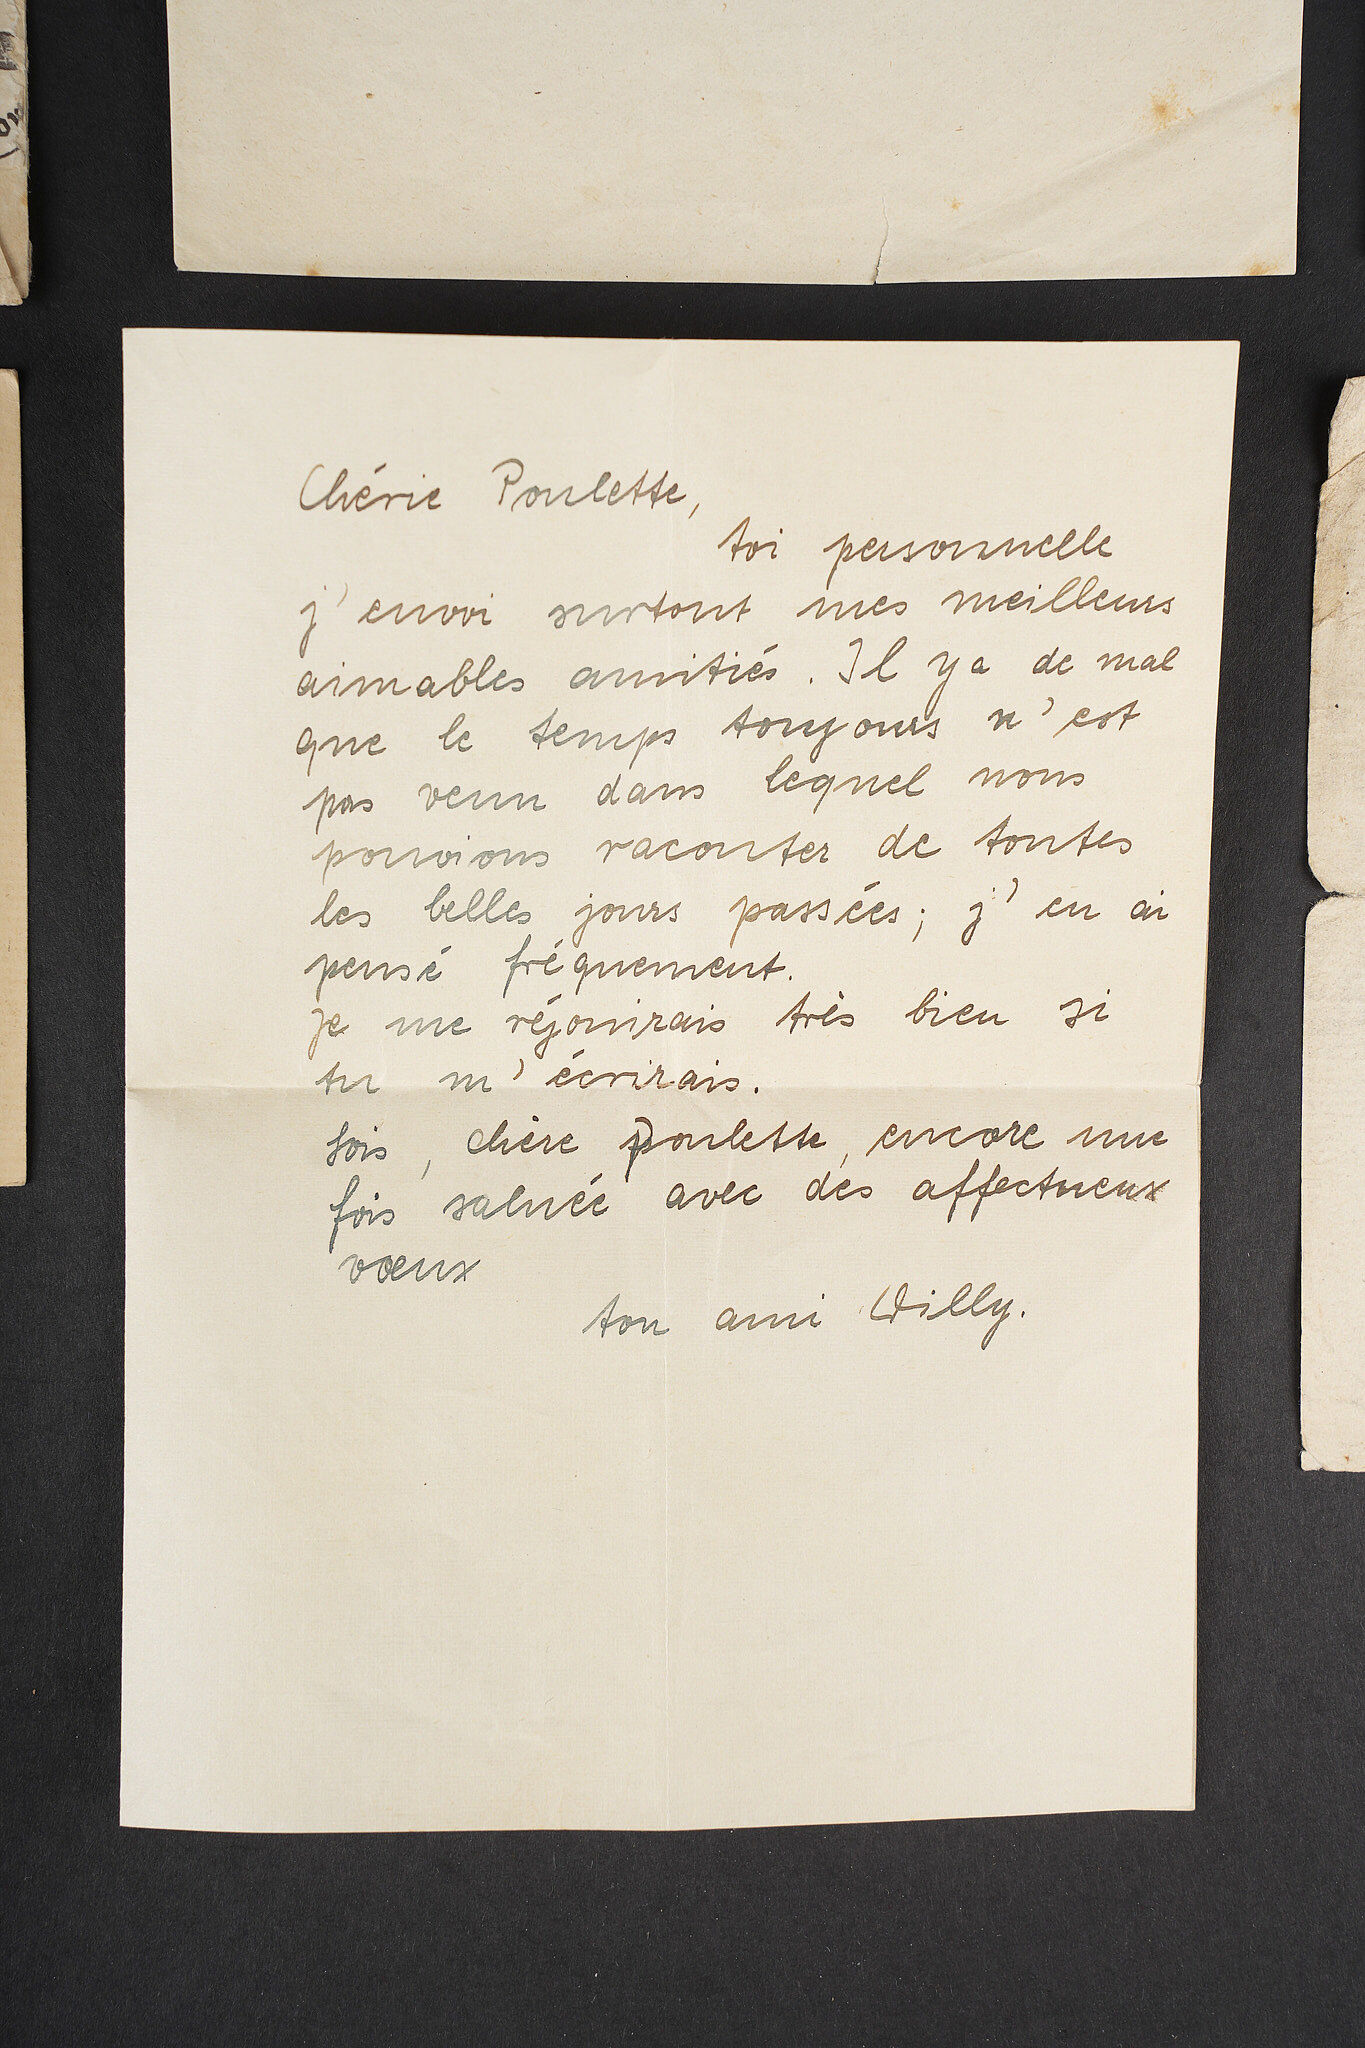 Chérie Poulette,
toi personnelle
j'envoi surtout mes meilleurs
aimables amitiés. Il ya de mal
que le temps toujours n'est
pas venu dans lequel nous
pouvions raconter de toutes
les belles jours passées; j'en ai
pensé fréquement.
Je me réjouirais très bien si
tu m'écrirais.
Sois, chère Poulette, encore une
fois saluée avec des affectueux
vœux
ton ami Willy.